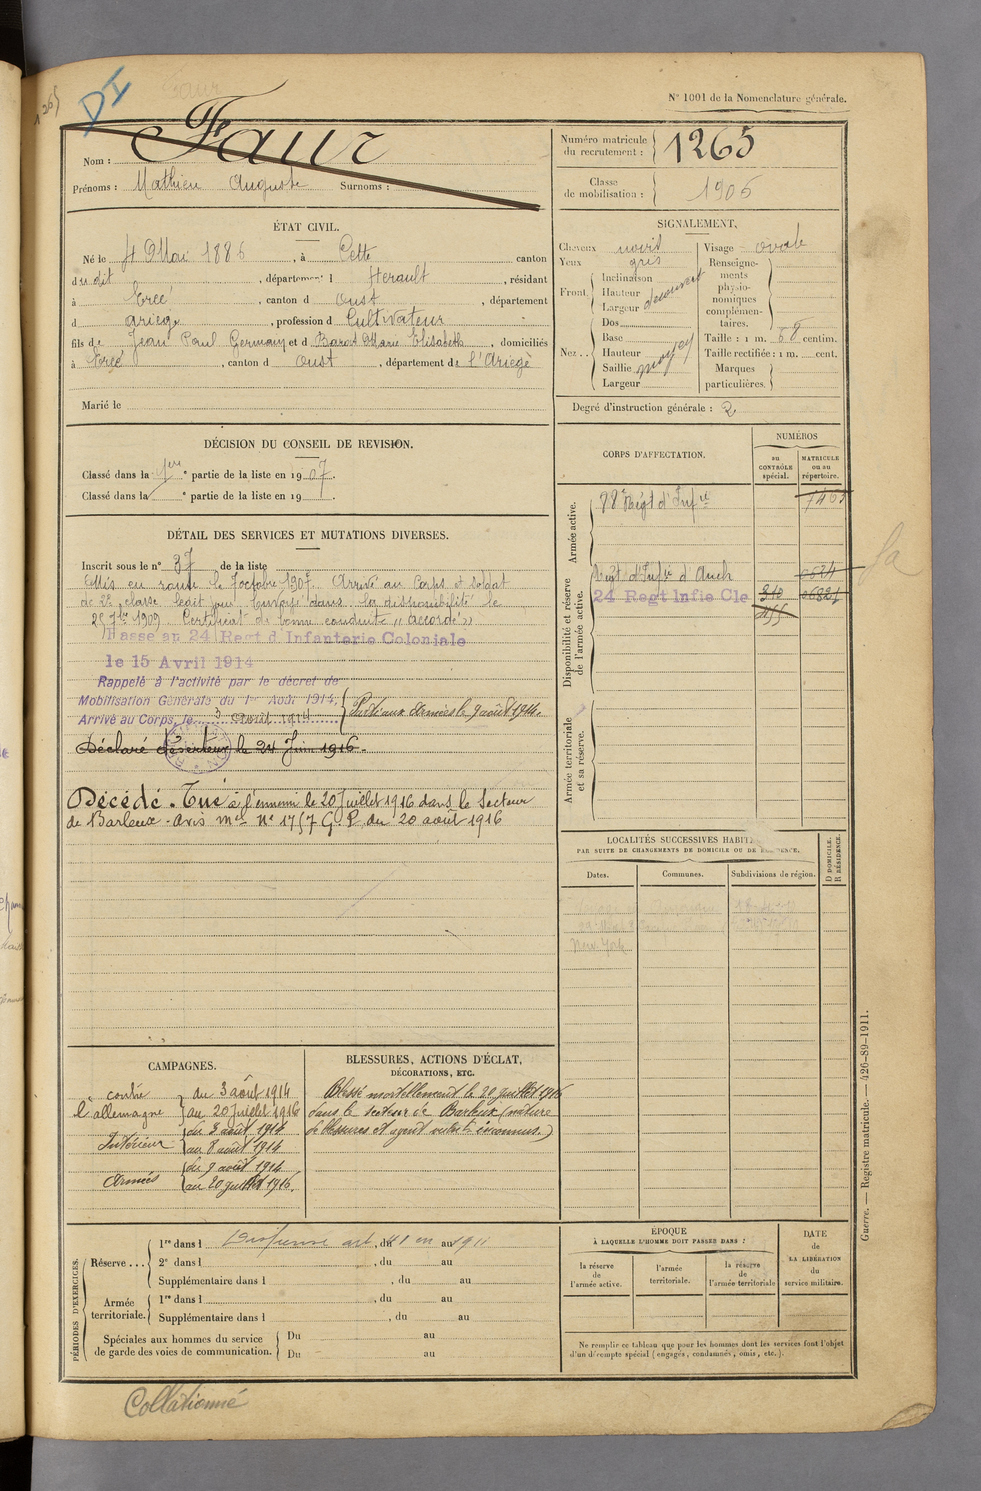 1265
DI
Faur
N° 1001 de la Nomenclature générale.
Nom : Faur
Prénoms : Mathieu Auguste Surnoms :
Numéro matricule du recrutement : 1265
Classe de mobilisation : 1906
ÉTAT CIVIL.
Né le 4 Mai 1886, à Cette canton
du dit, département d Herault, résidant
à Ercé, canton d Oust, département
d Ariege, profession d Cultivateur
fils de Jean Paul Germain et d Barat Marie Elisabeth, domiciliés
à Ercé, canton d Oust, département de L'Ariege
Marié le
SIGNALEMENT.
Cheveux noirs
Yeux gris
Front. Inclinaison
Hauteur
Largeur
découvert
Nez... Dos
Base
Hauteur
Saillie moyen
Largeur
Visage ovale
Renseignements physionomiques complémentaires.
Taille : 1 m. 58 centim.
Taille rectifiée : 1 m. cent.
Marques particulières.
Degré d'instruction générale : 2
DÉCISION DU CONSEIL DE REVISION.
Classé dans la 1ère partie de la liste en 1907.
Classé dans la e partie de la liste en 19 .
DÉTAIL DES SERVICES ET MUTATIONS DIVERSES.
Inscrit sous le n° 37 de la liste
Mis en route le 7 octobre 1907. Arrivé au Corps et soldat
de 2e classe ledit jour. Envoyé dans la disponibilité le
25 7bre 1909. Certificat de bonne conduite "accordé"
Passé au 24 Regt d'Infanterie Coloniale
le 15 Avril 1914
Rappelé à l'activité par le décret de
Mobilisation Générale du 1er Août 1914.
Arrivé au Corps, le 3 août 1914
Parti aux Armées le 9 août 1914.
Déclaré déserteur le 24 Juin 1916.
Décédé. Tué à l'ennemi le 20 Juillet 1916 dans le Secteur
de Barleux. Avis mel N° 1757 G.P. du 20 août 1916
CORPS D'AFFECTATION.
NUMÉROS
au CONTRÔLE spécial.
MATRICULE ou au répertoire.
Armée active.
88e Régt d'Infie
Disponibilité et réserve de l'armée active.
Régt d'Infie d'Auch
24 Regt Infie Cle
Armée territoriale et sa réserve.
LOCALITÉS SUCCESSIVES HABITÉES
PAR SUITE DE CHANGEMENTS DE DOMICILE OU DE RÉSIDENCE.
Dates.
Communes.
Subdivisions de région.
D DOMICILE. R RÉSIDENCE.
New York
CAMPAGNES.
contre l'allemagne du 3 août 1914
au 20 Juillet 1916
Intérieur du 3 août 1914
au 8 août 1914
Armées du 9 août 1914
au 20 juillet 1916.
BLESSURES, ACTIONS D'ÉCLAT,
DÉCORATIONS, ETC.
Blessé mortellement le 20 juillet 1916
dans le secteur de Barleux (nature
de blessures et agent vulnt inconnus.)
PÉRIODES D'EXERCICES.
Réserve... 1re dans l Dispense , du au 1911
2e dans l , du au
Supplémentaire dans l , du au
Armée territoriale. 1re dans l , du au
Supplémentaire dans l , du au
Spéciales aux hommes du service de garde des voies de communication. Du au
Du au
ÉPOQUE
À LAQUELLE L'HOMME DOIT PASSER DANS :
la réserve de l'armée active.
l'armée territoriale.
la réserve de l'armée territoriale
DATE de LA LIBÉRATION du service militaire.
Ne remplir ce tableau que pour les hommes dont les services font l'objet
d'un décompte spécial (engagés, condamnés, omis, etc.).
Guerre. — Registre matricule. — 426-89-1911.
Collationné